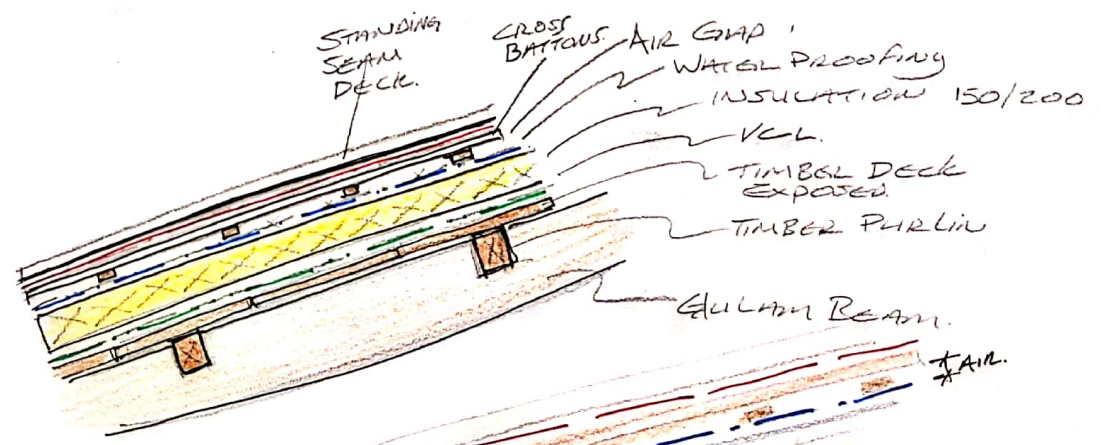 STANDING
SEAM
DECK.
CROSS
BATTONS.
AIR GAP
WATER PROOFING
INSULATION 150/200
VCL.
TIMBER DECK
EXPOSED.
TIMBER PURLIN
GLULAM BEAM.
AIR.